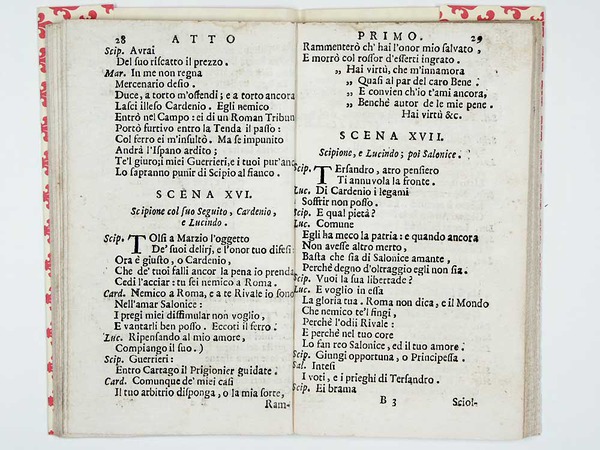 28 ATTO
Scip. Avrai
Del suo riscatto il prezzo.
Mar. In me non regna
Mercenario desio.
Duce, a torto m'offendi; e a torto ancora
Lasci illeso Cardenio. Egli nemico
Entrò nel Campo: ei di un Roman Tribun
Portò furtivo entro la Tenda il passo:
Col ferro ei m'insultò. Ma se impunito
Andrà l'Ispano ardito;
Te'l giuro; i miei Guerrieri, e i tuoi pur'anc
Lo sapranno punir di Scipio al fianco.
SCENA XVI.
Scipione col suo Seguito, Cardenio,
e Lucindo.
Scip. TOlsi a Marzio l'oggetto
De' suoi deliri, e l'onor tuo difesi
Ora è giusto, o Cardenio,
Che de' tuoi falli ancor la pena io prenda
Cedi l'acciar: tu sei nemico a Roma.
Card. Nemico a Roma, e a te Rivale io sono
Nell'amar Salonice:
I pregi miei dissimular non voglio,
E vantarli ben posso. Eccoti il ferro.
Luc. Ripensando al mio amore,
Compiango il suo.)
Scip. Guerrieri:
Entro Cartago il Prigionier guidate.
Card. Comunque de' miei casi
Il tuo arbitrio disponga, o la mia sorte,
Ram-
PRIMO. 29
Rammenterò ch' hai l'onor mio salvato,
E morrò col rossor d'esserti ingrato.
„ Hai virtù, che m'innamora
„ Quasi al par del caro Bene.
„ E convien ch'io t'ami ancora,
„ Benchè autor de le mie pene.
Hai virtù &c.
SCENA XVII.
Scipione, e Lucindo; poi Salonice.
Scip. TErsandro, atro pensiero
Ti annuvola la fronte.
Luc. Di Cardenio i legami
Soffrir non posso.
Scip. E qual pietà?
Luc. Comune
Egli ha meco la patria: e quando ancora
Non avesse altro merto,
Basta che sia di Salonice amante,
Perchè degno d'oltraggio egli non sia.
Scip. Vuoi la sua libertade?
Luc. E voglio in essa
La gloria tua. Roma non dica, e il Mondo
Che nemico te'l fingi,
Perchè l'odii Rivale:
E perchè nel tuo core
Lo fan reo Salonice, ed il tuo amore.
Scip. Giungi opportuna, o Principessa.
Sal. Intesi
I voti, e i prieghi di Tersandro.
Scip. Ei brama
B 3 Sciol-